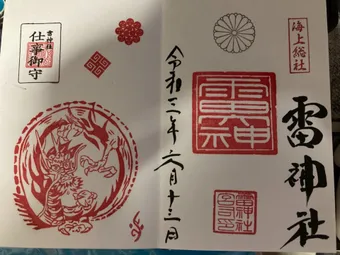 海上総社
雷神社
雷神
令和三年六月十三日
雷神社
仕事御守